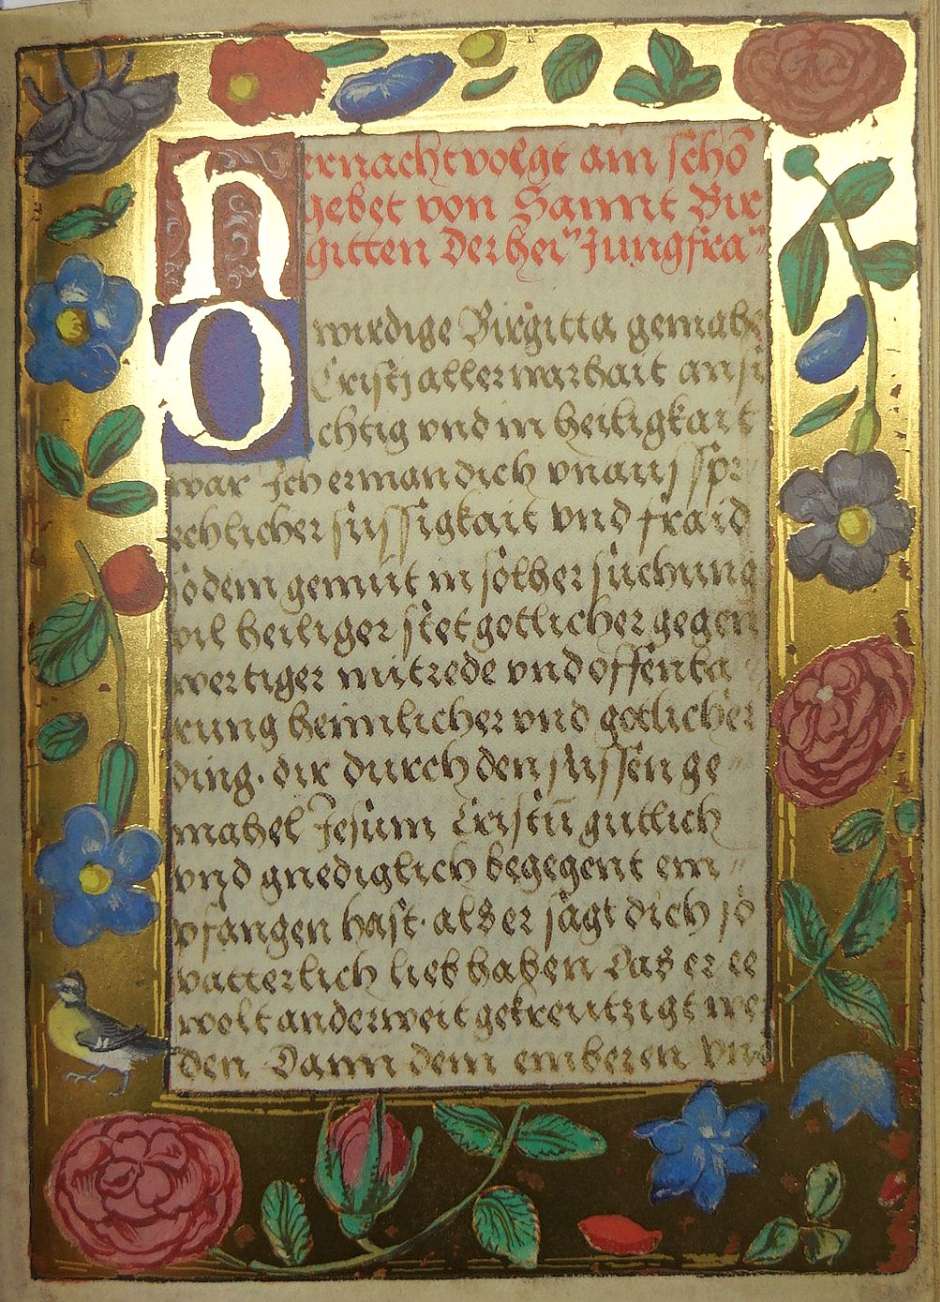 hernachtvolgt ain schō
gebet von Sannt Bir
gitten der hei" Jungfra"
O wirdige Birgitta gemahl
Cristj aller warhait ansi
chtig vnd in heiligkait
war Ich erman dich vnauſſpr
echlicher süssigkait vnd fraid
so dem gemüt in sölher süchung
vil heiliger stet gotlicher gegen
wertiger mitrede vnd offenba
rung heimlicher vnd gotlicher
ding. dir durch den süssen ge"
mahel Jesum Cristū gütlich
vnd gnediglich begegent em"
pfangen hast. als er sagt dich so
vatterlich lieb haben Das er ee
wolt anderweit gekreutzigt we
den Dann dem emberen Vnd